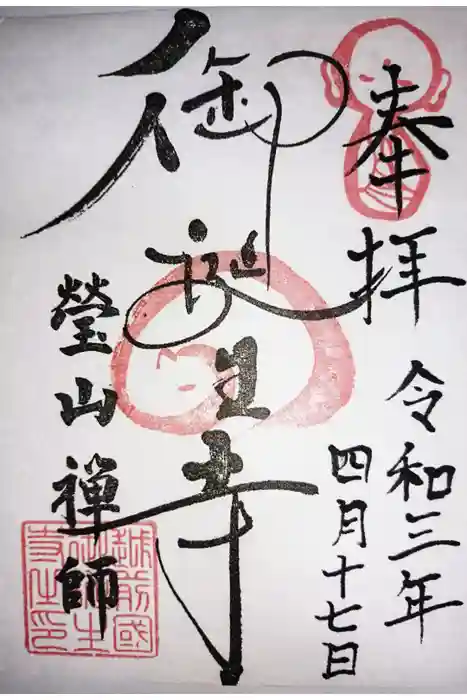 奉拝
令和三年
四月十七日
御誕生寺
瑩山禪師
越前國
御誕生
寺之印